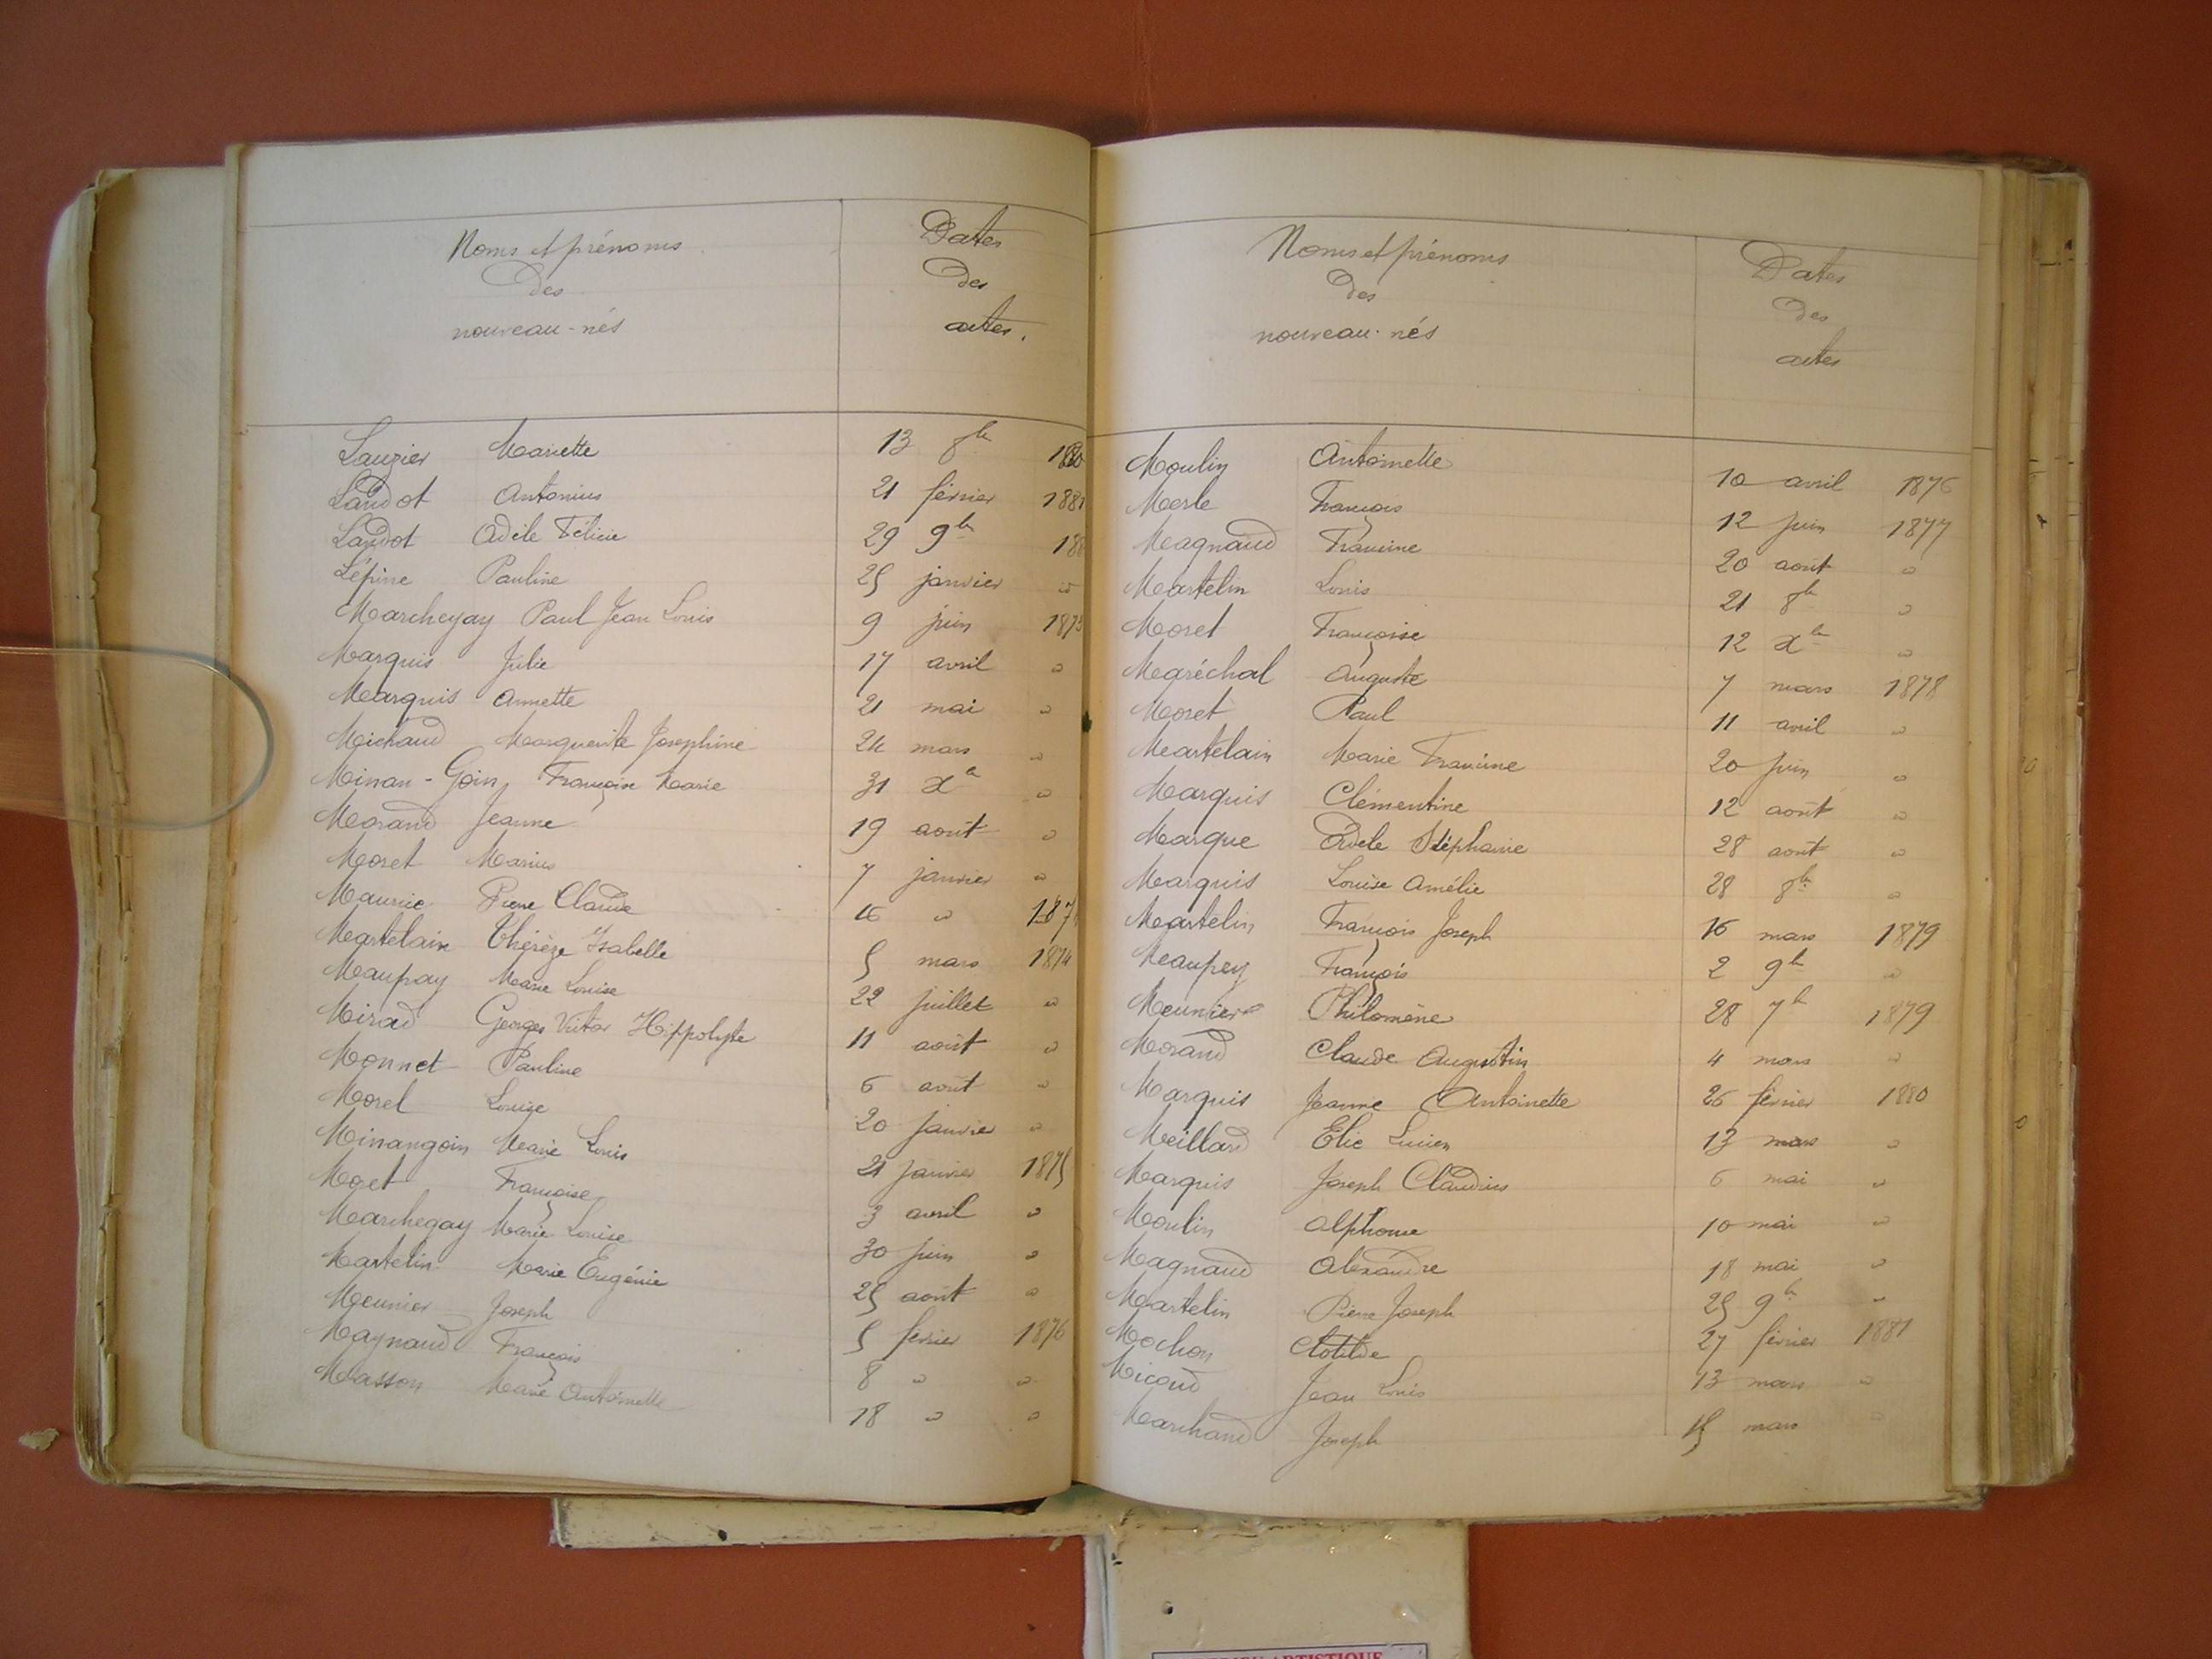 Noms et prénoms
des
nouveau-nés
Dates
des
actes.
Lauzier Mariette 13 8bre 1880
Landot Antonius 21 février 1881
Landot Adèle Félicie 29 9bre 188
Lépine Pauline 25 janvier "
Marchegay Paul Jean Louis 9 juin 1873
Marquis Julie 17 avril "
Marquis Annette 21 mai "
Michaud Marguerite Joséphine 24 mars "
Minan-Goin Françoise Marie 31 Xe "
Morand Jeanne 19 août "
Moret Marius 7 janvier "
Maurice Pierre Claude 16 " 187
Martelain Thérèze Isabelle 5 mars 1874
Maupay Marie Louise 22 juillet "
Mirad Georges Victor Hippolyte 11 août "
Monnet Pauline 6 août "
Morel Louise 20 janvier "
Minangoin Marie Louis 21 janvier 1875
Moret Françoise 3 avril "
Marchegay Marie Louise 30 juin "
Martelin Marie Eugénie 25 août "
Meunier Joseph 5 février 1876
Magnaud François 8 " "
Masson Marie Antoinette 18 " "
Noms et prénoms
des
nouveau-nés
Dates
des
actes
Moulin Antoinette 10 avril 1876
Merle François 12 juin 1877
Magnaud Francine 20 août "
Martelin Louis 21 8bre "
Moret Françoise 12 Xbre "
Maréchal Auguste 7 mars 1878
Moret Paul 11 avril "
Martelain Marie Francine 20 juin "
Marquis Clémentine 12 août "
Marque Adèle Stéphanie 28 août "
Marquis Louise Amélie 28 8bre "
Martelin François Joseph 16 mars 1879
Maupey François 2 9bre "
Meunier Philomène 28 7bre 1879
Morand Claude Augustin 4 mars "
Marquis Jeanne Antoinette 26 février 1880
Meilland Elie Lucien 13 mars "
Marquis Joseph Claudius 6 mai "
Moulin Alphonse 10 mai "
Magnaud Alexandre 18 mai "
Martelin Pierre Joseph 25 9bre "
Mochon Clotilde 27 février 1881
Micoud Jean Louis 13 mars "
Marchand Joseph 15 mars "